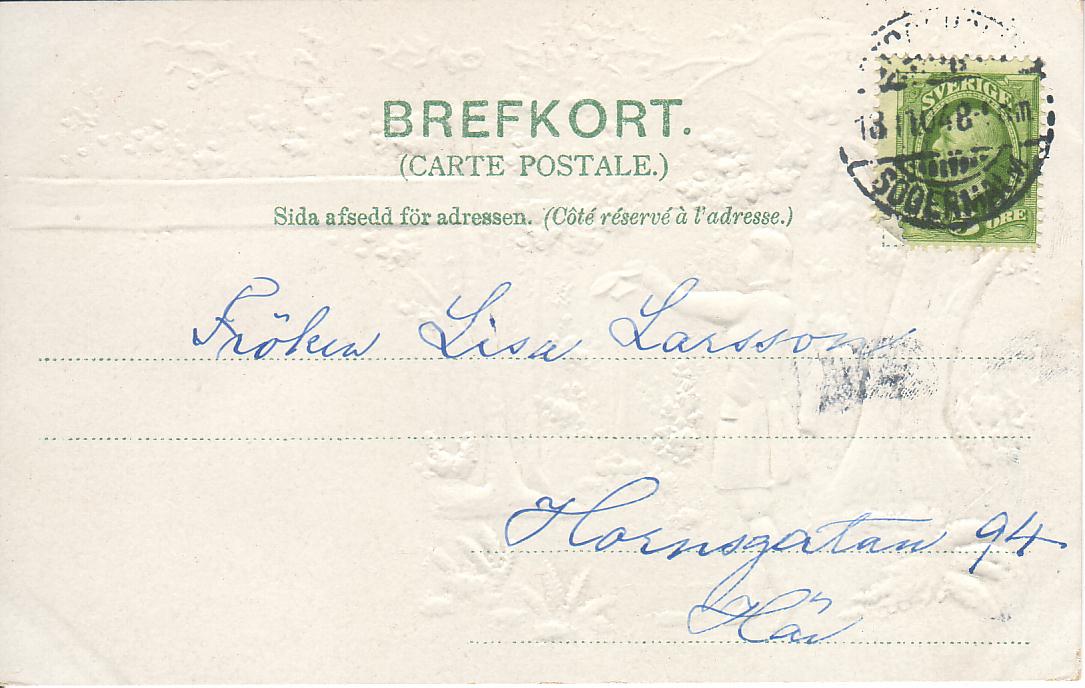 BREFKORT.
(CARTE POSTALE.)
Sida afsedd för adressen. (Côté réservé à l'adresse.)
SVERIGE
ÖRE
SÖDERMALM
Fröken Lisa Larsson
Hornsgatan 94
Här